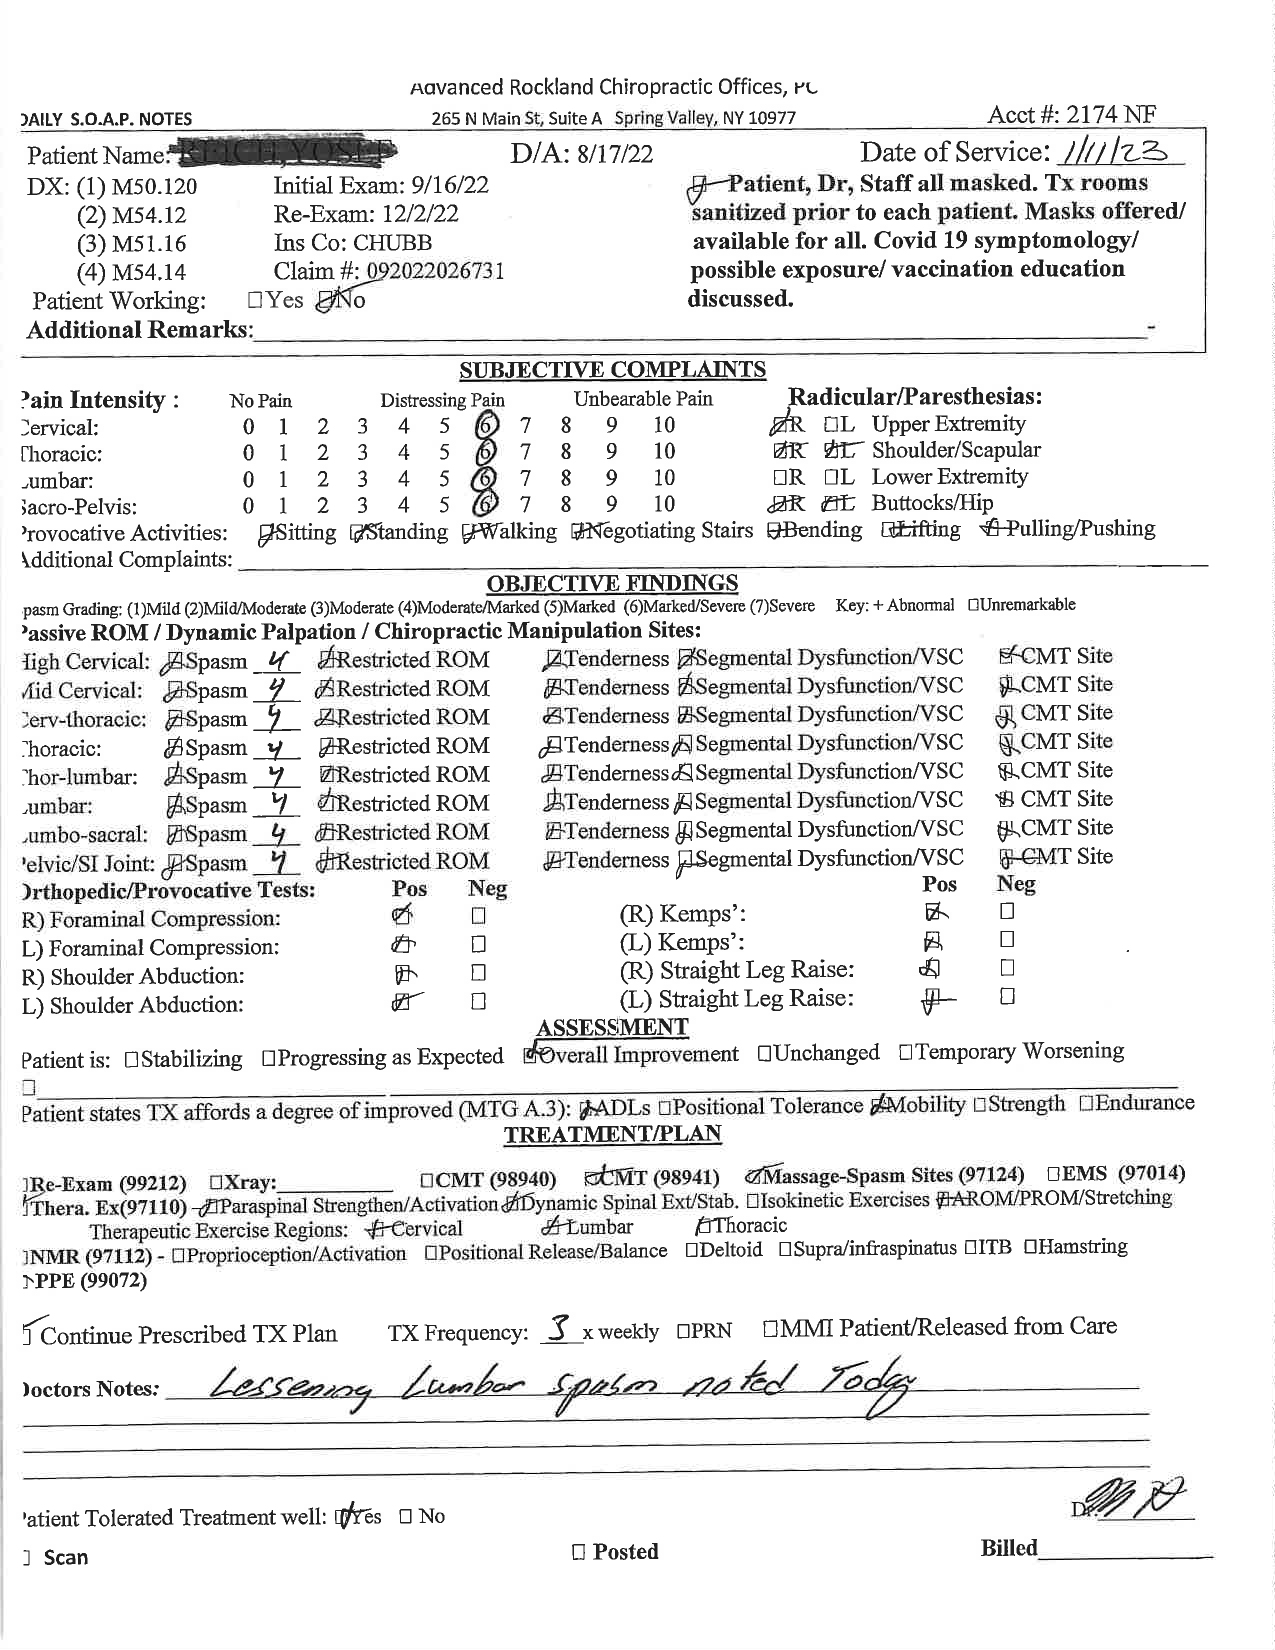 Advanced Rockland Chiropractic Offices, PC
DAILY S.O.A.P. NOTES 265 N Main St, Suite A Spring Valley, NY 10977 Acct #: 2174 NF
Patient Name: D/A: 8/17/22 Date of Service: 1/11/23
DX: (1) M50.120 Initial Exam: 9/16/22 Patient, Dr, Staff all masked. Tx rooms
(2) M54.12 Re-Exam: 12/2/22 sanitized prior to each patient. Masks offered/
(3) M51.16 Ins Co: CHUBB available for all. Covid 19 symptomology/
(4) M54.14 Claim #: 092022026731 possible exposure/ vaccination education
Patient Working: ☐Yes ☑No discussed.
Additional Remarks: -
SUBJECTIVE COMPLAINTS
Pain Intensity : No Pain Distressing Pain Unbearable Pain Radicular/Paresthesias:
Cervical: 0 1 2 3 4 5 6 7 8 9 10 ☑R ☐L Upper Extremity
Thoracic: 0 1 2 3 4 5 6 7 8 9 10 ☑R ☑L Shoulder/Scapular
Lumbar: 0 1 2 3 4 5 6 7 8 9 10 ☐R ☐L Lower Extremity
Sacro-Pelvis: 0 1 2 3 4 5 6 7 8 9 10 ☑R ☑L Buttocks/Hip
Provocative Activities: ☑Sitting ☑Standing ☑Walking ☑Negotiating Stairs ☑Bending ☑Lifting ☑Pulling/Pushing
Additional Complaints:
OBJECTIVE FINDINGS
Spasm Grading: (1)Mild (2)Mild/Moderate (3)Moderate (4)Moderate/Marked (5)Marked (6)Marked/Severe (7)Severe Key: + Abnormal ☐Unremarkable
Passive ROM / Dynamic Palpation / Chiropractic Manipulation Sites:
High Cervical: ☑Spasm 4 ☑Restricted ROM ☑Tenderness ☑Segmental Dysfunction/VSC ☑CMT Site
Mid Cervical: ☑Spasm 4 ☑Restricted ROM ☑Tenderness ☑Segmental Dysfunction/VSC ☑CMT Site
Cerv-thoracic: ☑Spasm 4 ☑Restricted ROM ☑Tenderness ☑Segmental Dysfunction/VSC ☑CMT Site
Thoracic: ☑Spasm 4 ☑Restricted ROM ☑Tenderness ☑Segmental Dysfunction/VSC ☑CMT Site
Thor-lumbar: ☑Spasm 4 ☑Restricted ROM ☑Tenderness ☑Segmental Dysfunction/VSC ☑CMT Site
Lumbar: ☑Spasm 4 ☑Restricted ROM ☑Tenderness ☑Segmental Dysfunction/VSC ☑CMT Site
Lumbo-sacral: ☑Spasm 4 ☑Restricted ROM ☑Tenderness ☑Segmental Dysfunction/VSC ☑CMT Site
Pelvic/SI Joint: ☑Spasm 4 ☑Restricted ROM ☑Tenderness ☑Segmental Dysfunction/VSC ☑CMT Site
Orthopedic/Provocative Tests: Pos Neg Pos Neg
R) Foraminal Compression: ☑ ☐ (R) Kemps': ☑ ☐
L) Foraminal Compression: ☑ ☐ (L) Kemps': ☑ ☐
R) Shoulder Abduction: ☑ ☐ (R) Straight Leg Raise: ☑ ☐
L) Shoulder Abduction: ☑ ☐ (L) Straight Leg Raise: ☑ ☐
ASSESSMENT
Patient is: ☐Stabilizing ☐Progressing as Expected ☑Overall Improvement ☐Unchanged ☐Temporary Worsening
☐
Patient states TX affords a degree of improved (MTG A.3): ☑ADLs ☐Positional Tolerance ☑Mobility ☐Strength ☐Endurance
TREATMENT/PLAN
☐Re-Exam (99212) ☐Xray: ☐CMT (98940) ☑CMT (98941) ☑Massage-Spasm Sites (97124) ☐EMS (97014)
☑Thera. Ex(97110) - ☑Paraspinal Strengthen/Activation ☑Dynamic Spinal Ext/Stab. ☐Isokinetic Exercises ☑AROM/PROM/Stretching
Therapeutic Exercise Regions: ☑Cervical ☑Lumbar ☑Thoracic
☐NMR (97112) - ☐Proprioception/Activation ☐Positional Release/Balance ☐Deltoid ☐Supra/infraspinatus ☐ITB ☐Hamstring
☑PPE (99072)
☑ Continue Prescribed TX Plan TX Frequency: 3 x weekly ☐PRN ☐MMI Patient/Released from Care
Doctors Notes: Lessening Lumbar spasm noted Today
Patient Tolerated Treatment well: ☑Yes ☐ No Dr.
☐ Scan ☐ Posted Billed